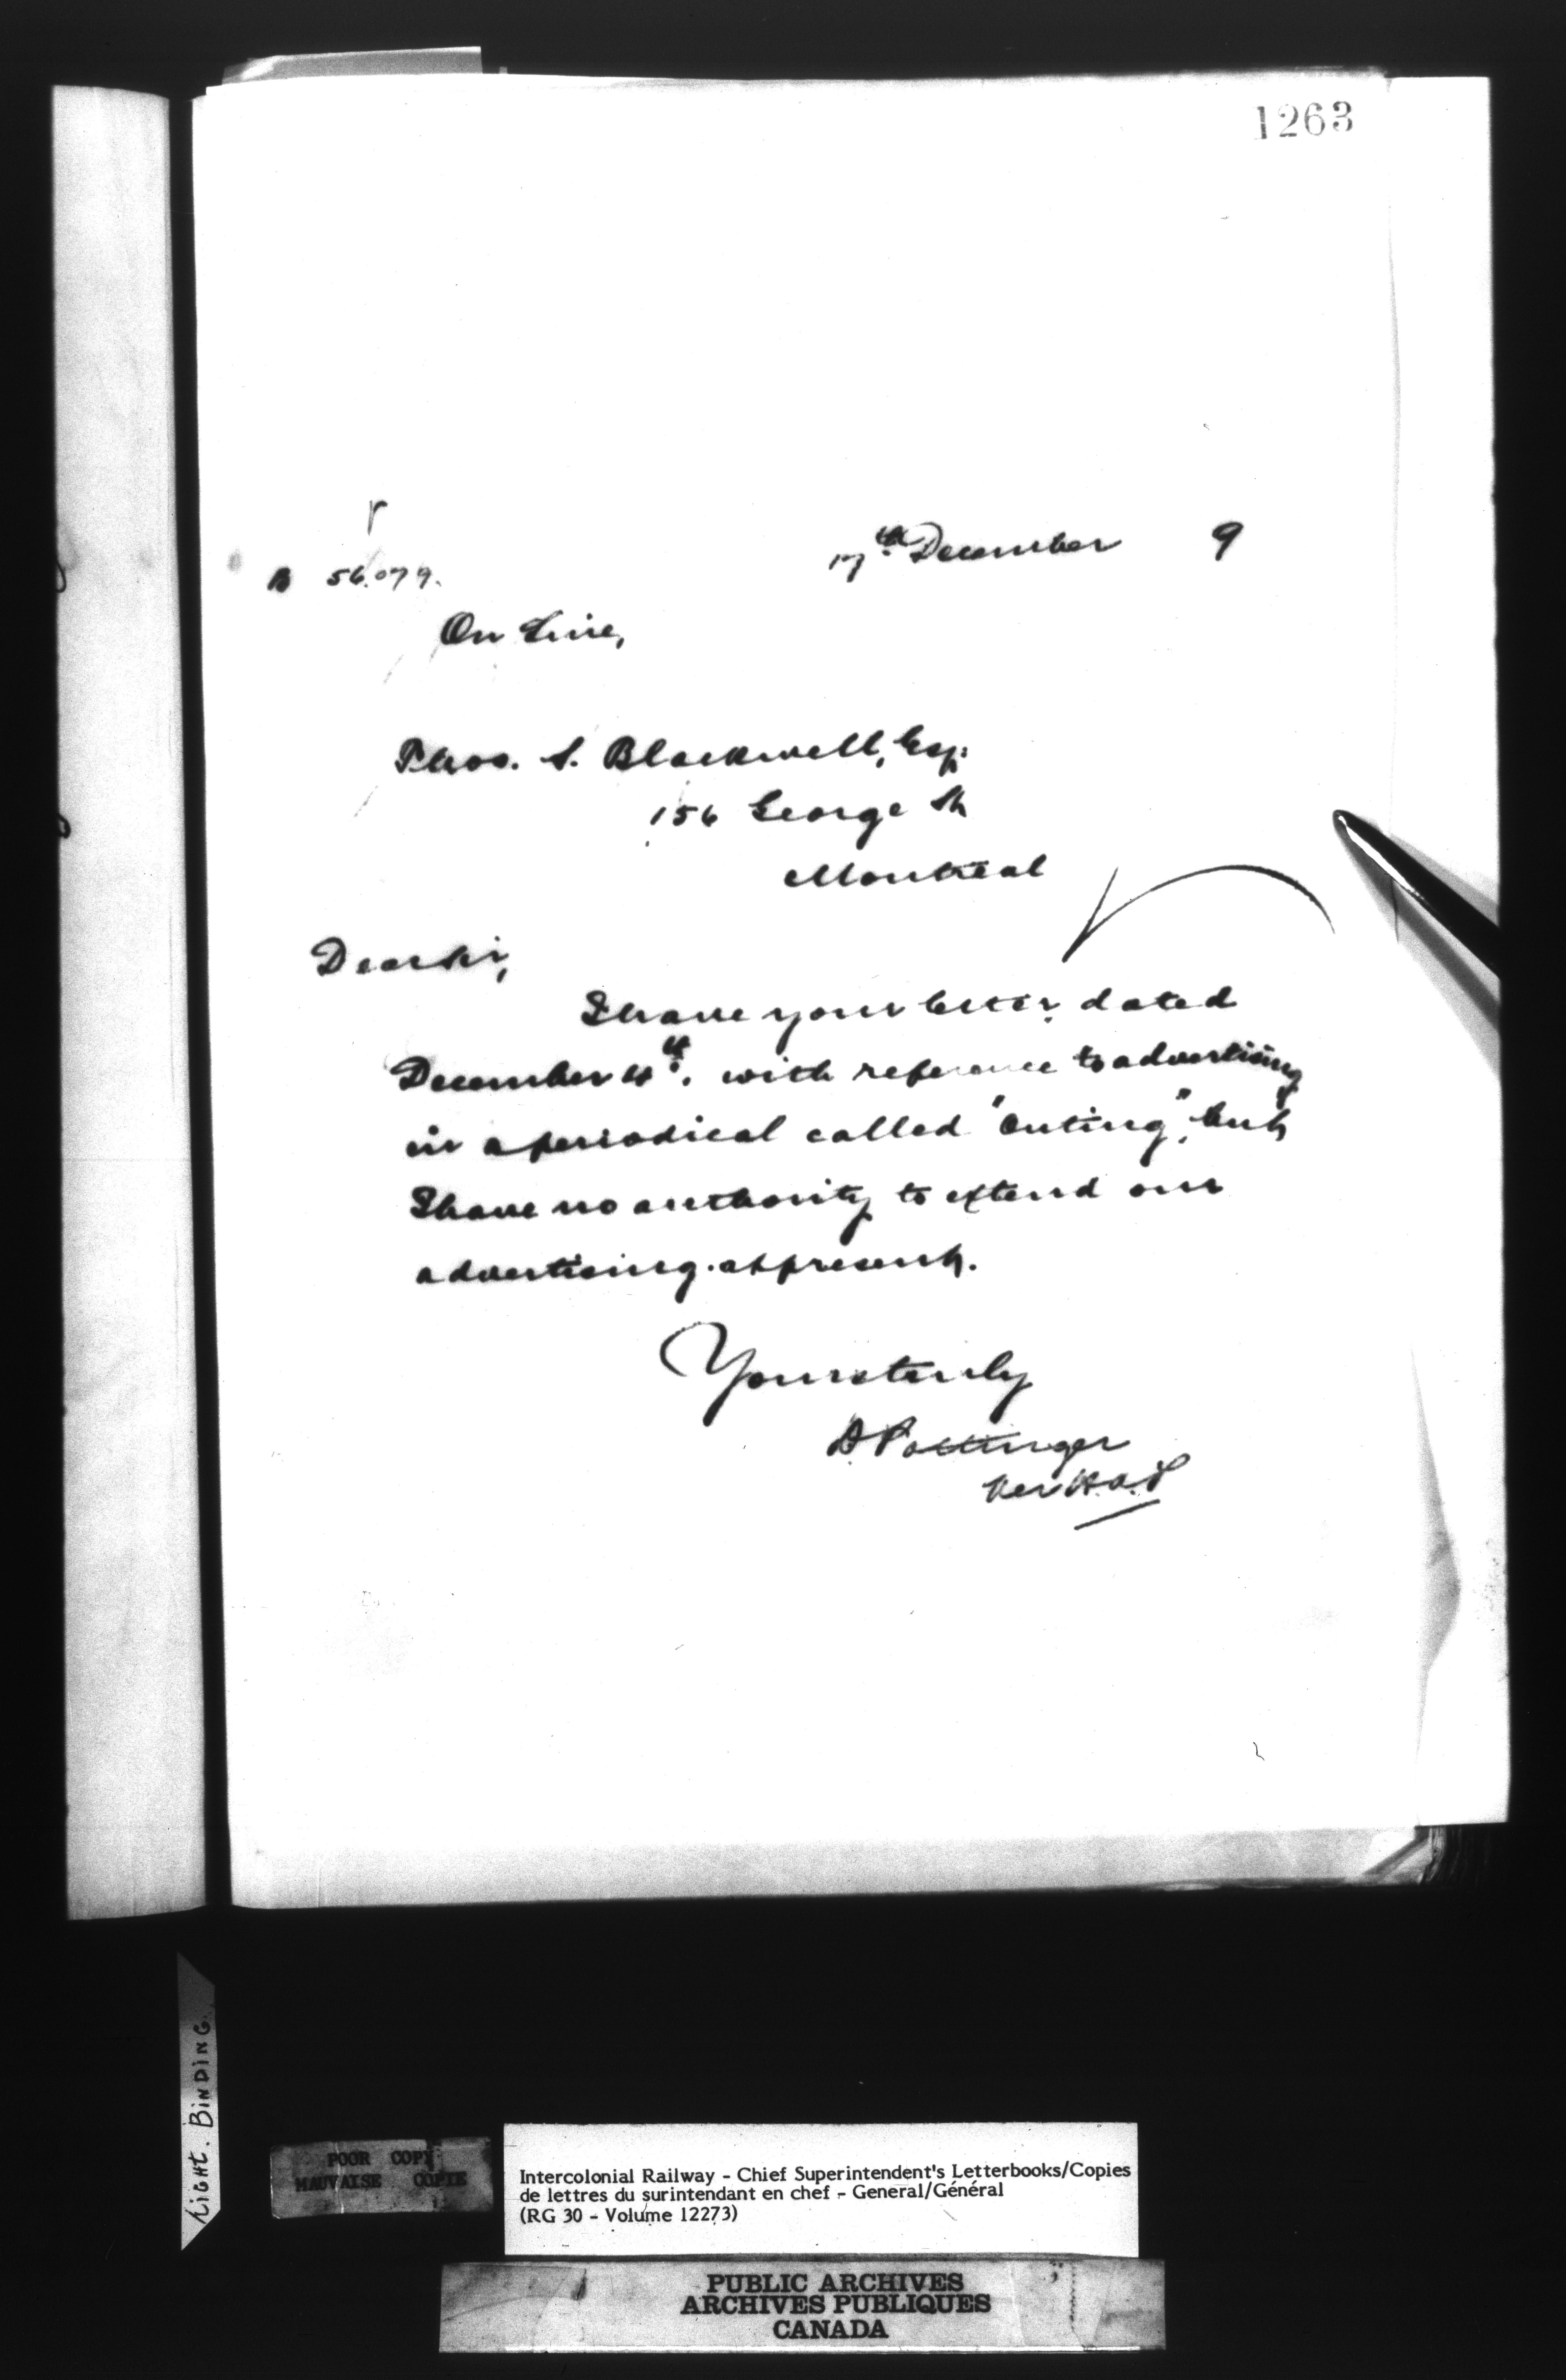 1263
17th December 9
B 56.079.
On Line,
Thos. S. Blackwell, Esq:
156 George St
Montreal
Dear Sir,
I have your letter dated
December 4th. with reference to advertising
in a periodical called "Outing", but
I have no authority to extend our
advertising at present.
Yours truly
D Pottinger
Per
TIGHT. BINDING.
POOR COPY
MAUVAISE COPIE
Intercolonial Railway - Chief Superintendent's Letterbooks/Copies
de lettres du surintendant en chef - General/Général
(RG 30 - Volume 12273)
PUBLIC ARCHIVES
ARCHIVES PUBLIQUES
CANADA